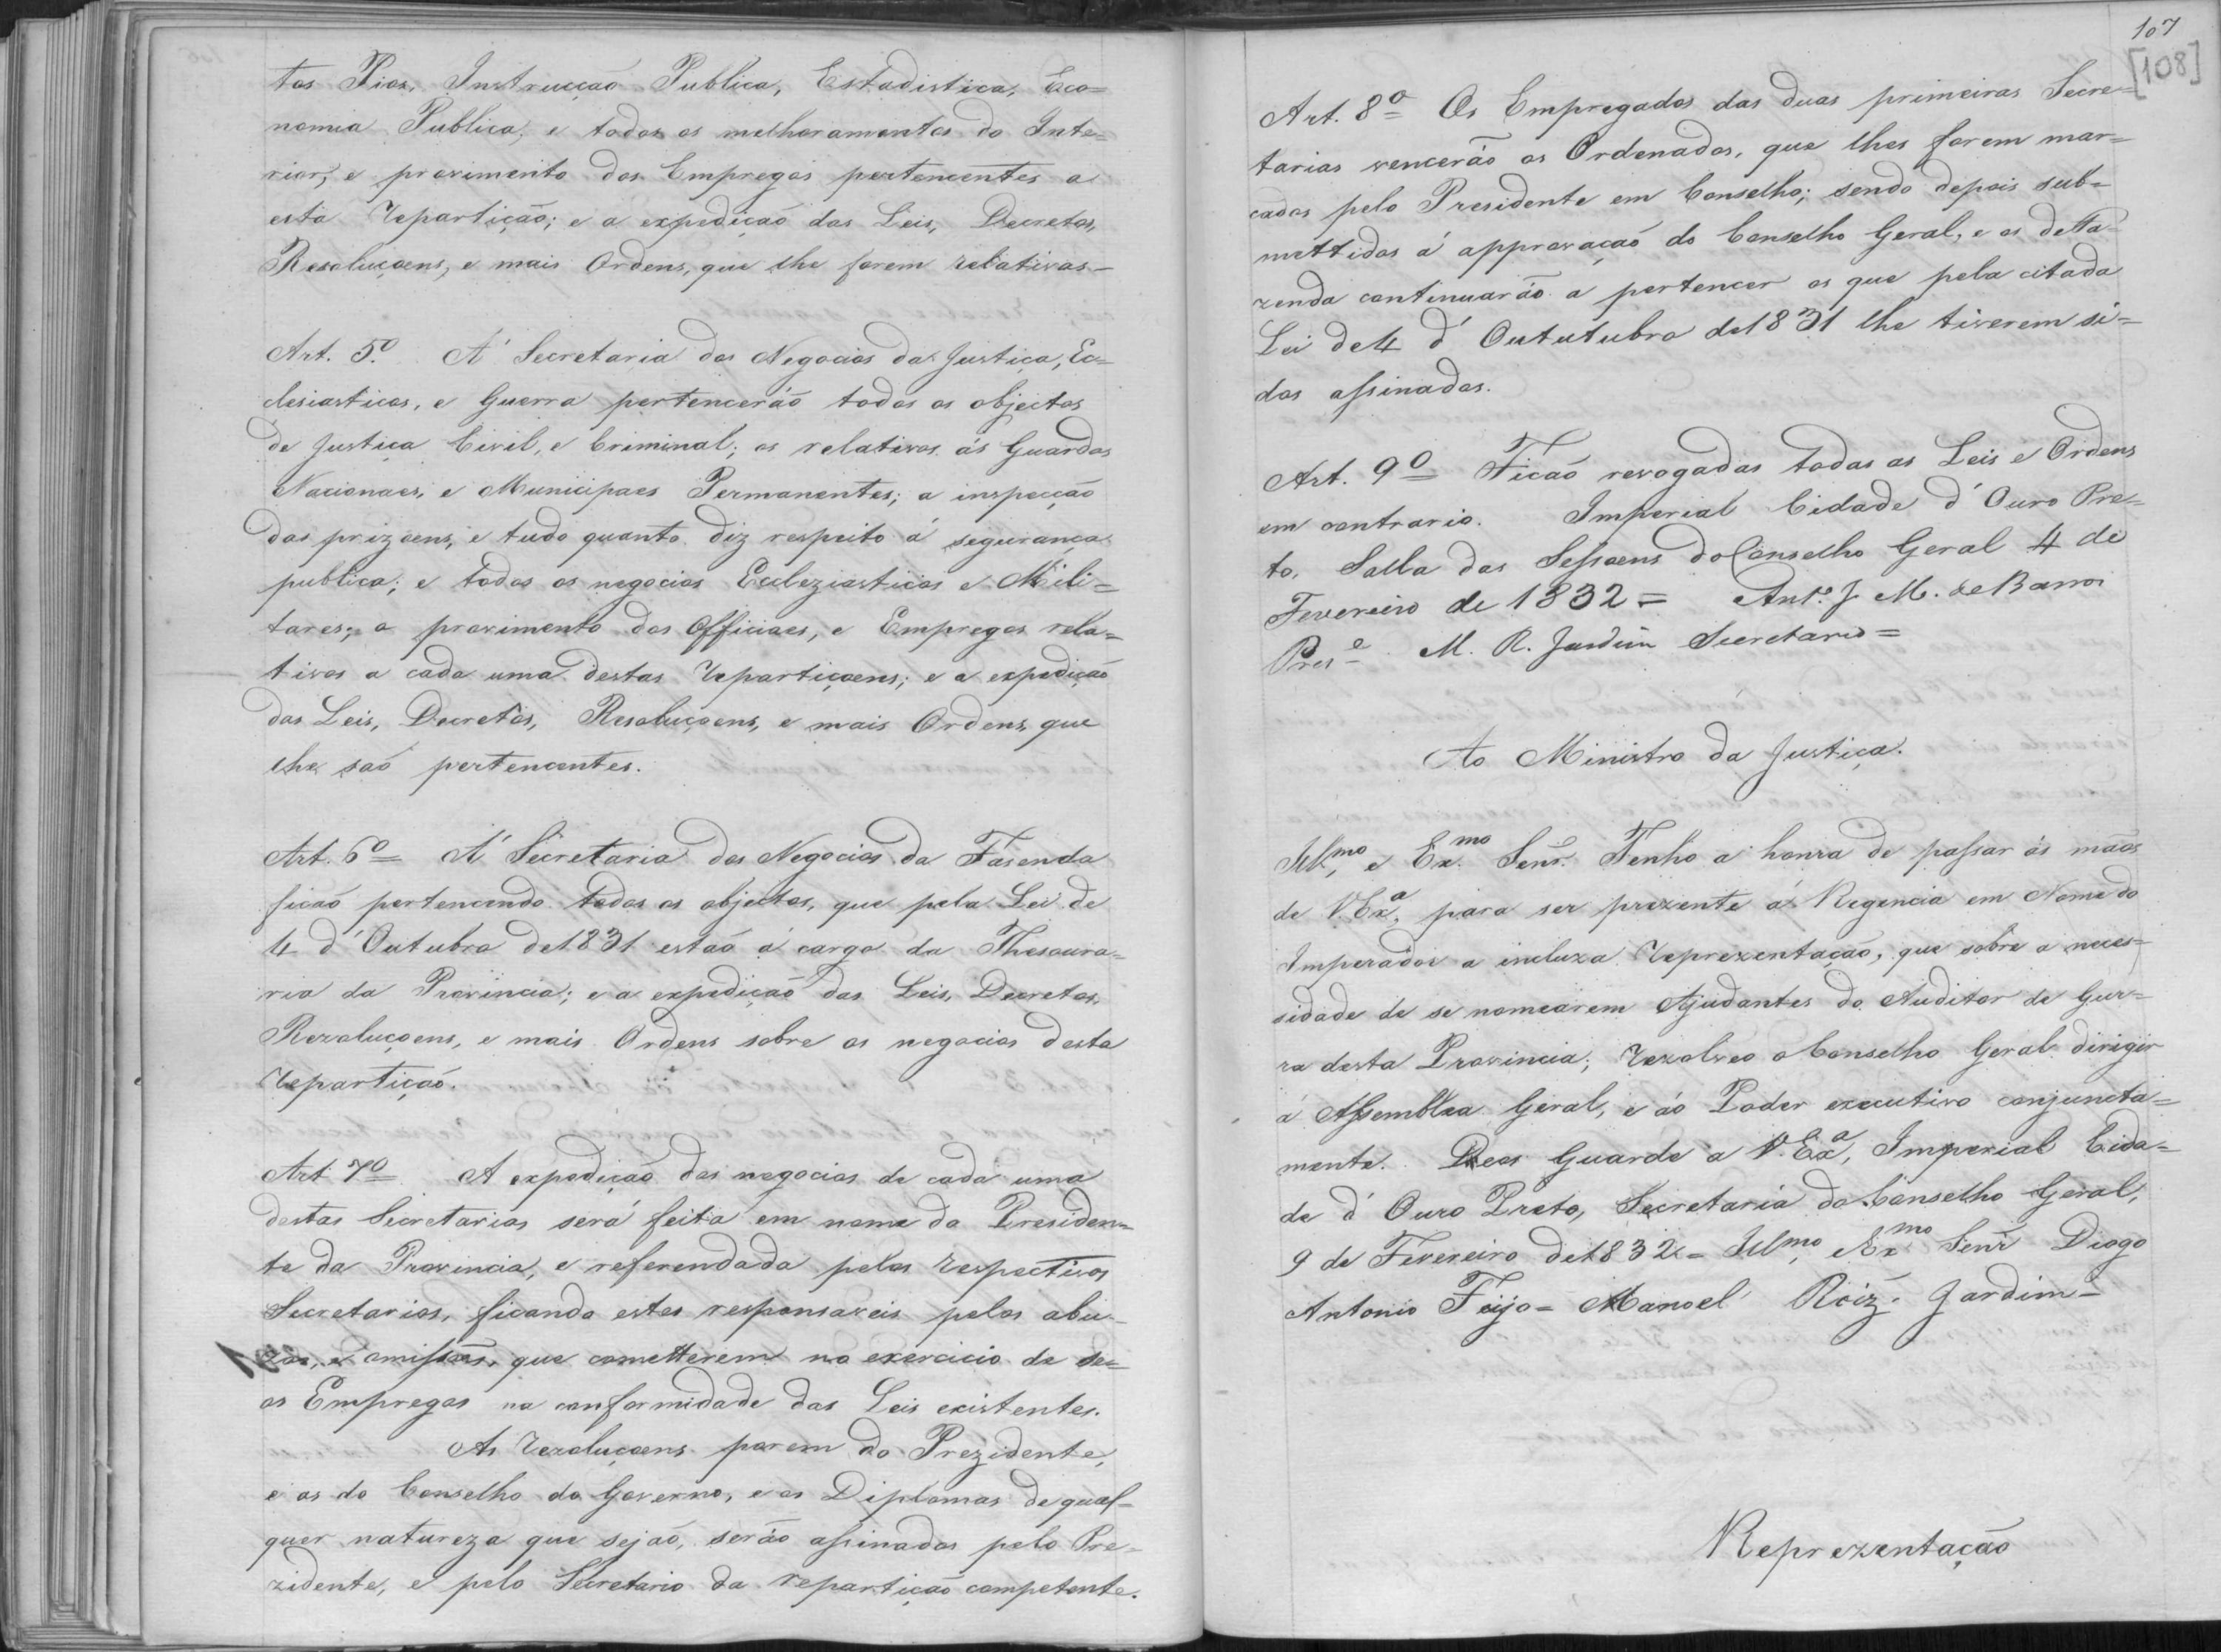 tos Pios, Instrucçaõ Publica, Estadistica, Eco=
nomia Publica, e todos os melhoramentos do Inte=
rior, e provimento dos Empregos pertencentes a
esta repartiçaõ; e a expediçaõ das Leis, Decretos,
Resoluçoens, e mais Ordens, que lhe forem relativas-
Art. 5.º A' Secretaria dos Negocios da Justiça, Ec=
clesiasticos, e Guerra pertenceráõ todos os objectos
de Justiça Civil, e Criminal; os relativos ás Guardas
Nacionaes, e Municipaes Permanentes; a inspecçaõ
das prizoens, e tudo quanto diz respeito á segurança
publica; e todos os negocios Eccleziasticos e Mili=
tares; o provimento dos Officiaes, e Empregos rela=
tivos a cada uma destas repartiçoens; e a expediçaõ
das Leis, Decretos, Resoluçoens, e mais Ordens, que
lhe saõ pertencentes.
Art. 6º= A' Secretaria dos Negocios da Fasenda
ficaõ pertencendo todos os objectos, que pela Lei de
4 d'Outubro de 1831 estaõ á cargo da Thesoura=
ria da Provincia; e a expediçaõ das Leis, Decretos,
Rezoluçoens, e mais Ordens sobre os negocios desta
repartiçaõ.
Art. 7º= A expediçaõ dos negocios de cada uma
destas Secretarias será feita em nome do Presiden=
te da Provincia, e referendada pelos respectivos
Secretarios, ficando estes responsaveis pelos abu=
zos, e omissoẽs, que cometterem no exercicio de se=
os Empregos na conformidade das Leis existentes.
As rezoluçoens porem do Prezidente,
e as do Conselho do Governo, e os Diplomas de qual=
quer natureza que sejaõ, seráõ assinados pelo Pre=
zidente, e pelo Secretario da repartiçaõ competente.
107
[108]
Art. 8º= Os Empregados das duas primeiras Secre=
tarias venceráõ os Ordenados, que lhes forem mar=
cados pelo Presidente em Conselho; sendo depois sub=
mettidos á approvaçaõ do Conselho Geral, e os da Fa=
zenda continuaráõ a pertencer os que pela citada
Lei de 4 d'Oututubro de 1831 lhe tiverem si=
dos assinados.
Art. 9º= Ficaõ revogadas todas as Leis e Ordens
em contrario. Imperial Cidade d'Ouro Pre=
to, Salla das Sessoens do Conselho Geral 4 de
Fevereiro de 1832= Antº. J. M. de Barros
Prese= M. R. Jardim Secretario=
Ao Ministro da Justiça.
Illmo, e Exmo. Senr. Tenho a honra de passar ás maõs
de V. Exa, para ser prezente á Regencia em Nome do
Imperador a incluza reprezentaçaõ, que sobre a neces=
sidade de se nomearem Ajudantes do Auditor de Guer=
ra desta Provincia; rezolveo o Conselho Geral dirigir
á Assemblea Geral, e ao Poder executivo conjuncta=
mente. Deos Guarde a V. Exa, Imperial Cida=
de d'Ouro Preto, Secretaria do Conselho Geral,
9 de Fevereiro de 1832= Illmo, e Exmo Senr Diogo
Antonio Feijo= Manoel Roiz. Jardim=
Reprezentaçaõ